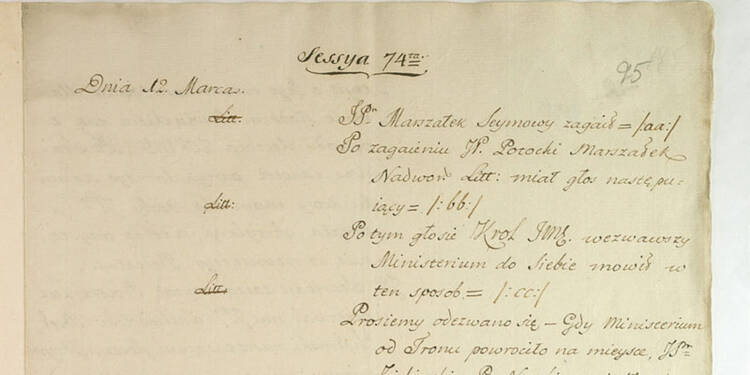 Sessya 74ta.
95
Dnia 12. Marca.
Litt:
JPn Marszałek Seymowy zagaił = /:aa:/
Po zagaieniu W. Potocki Marszałek
Nadwor: Litt: miał głos nastepu-
Litt:
iący = /:bb:/
Po tym głosie Krol JMć. wezwawszy
Ministerium do siebie mowił w
Litt:
ten sposob = /:cc:/
Prosiemy odezwano się – Gdy Ministerium
od Tronu powrociło na mieysce, JPn